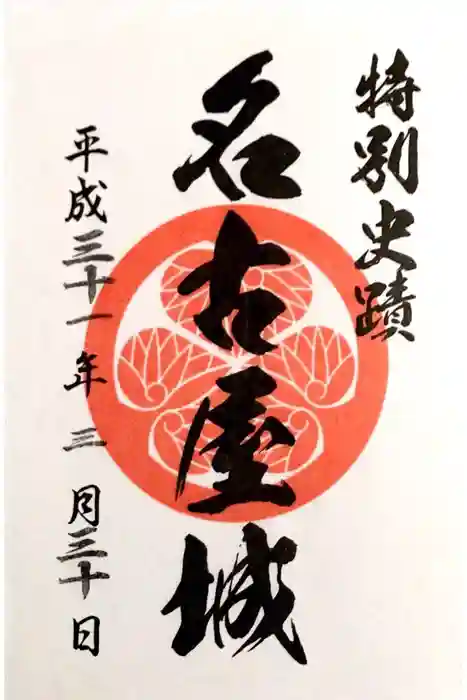 特別史蹟
名古屋城
平成三十一年三月三十日